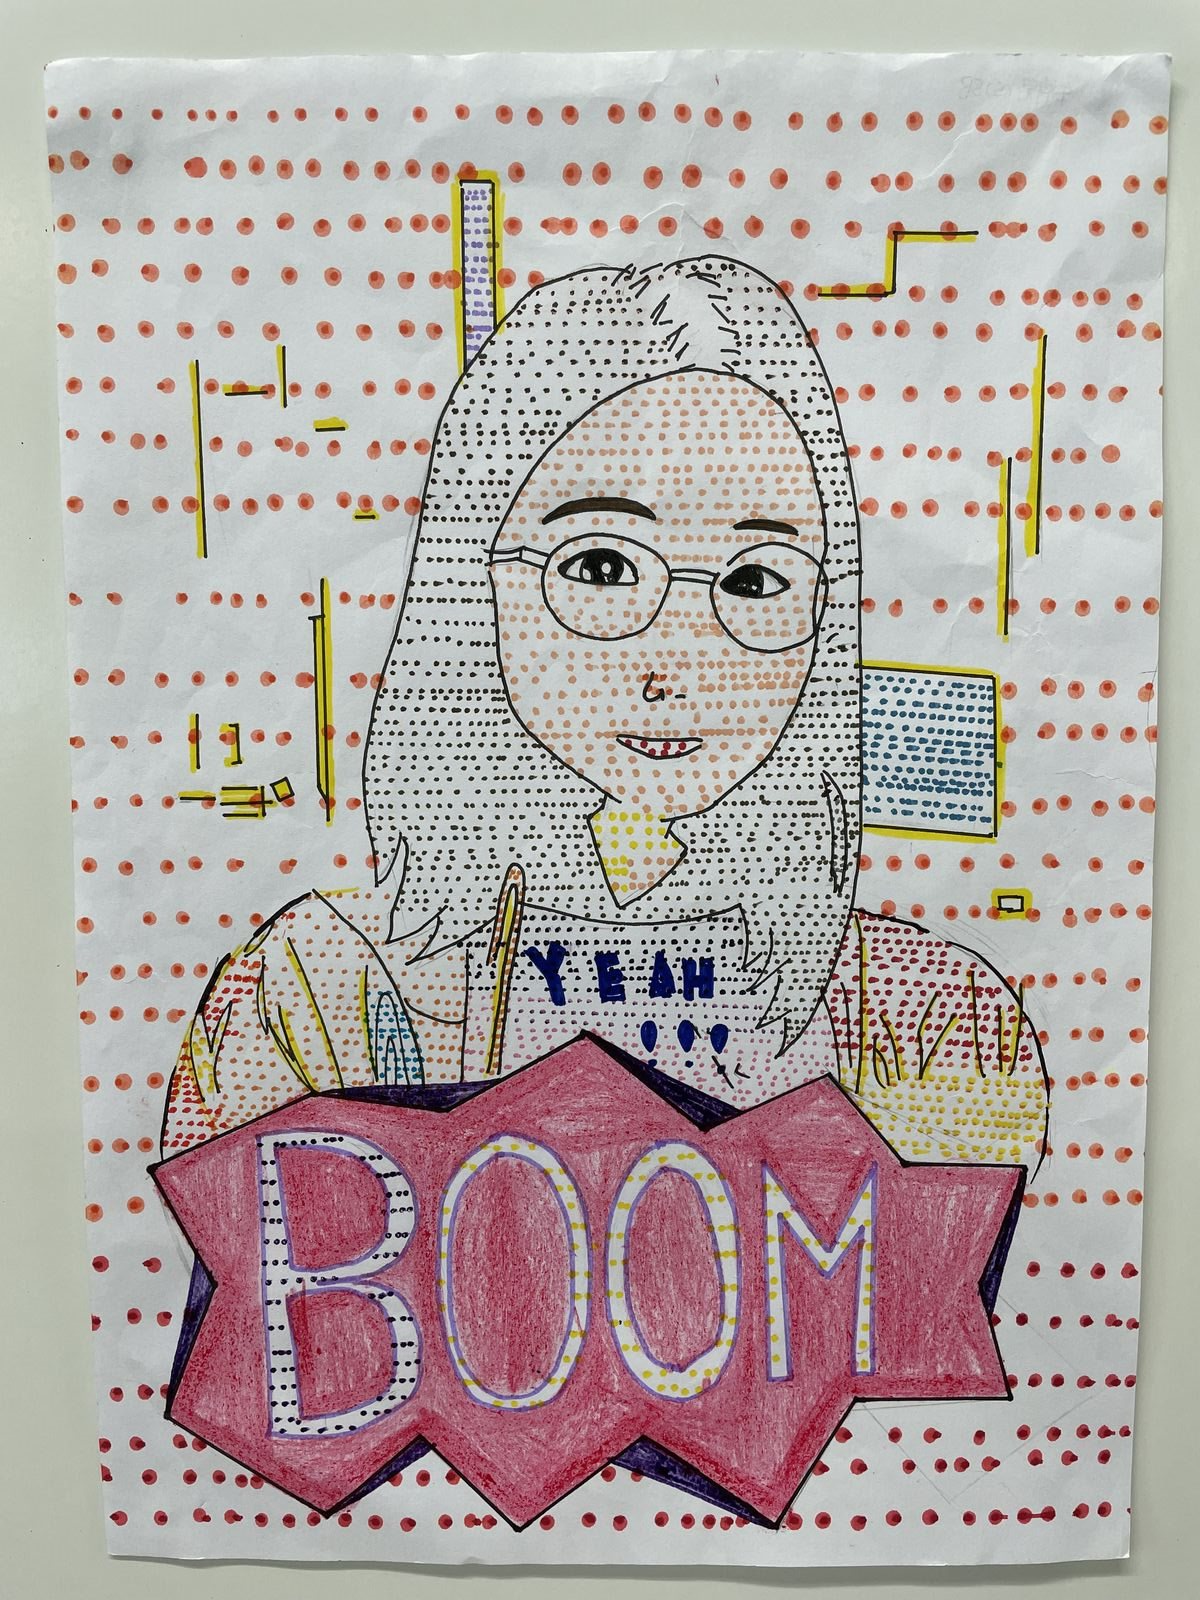 YEAH
!!!
BOOM